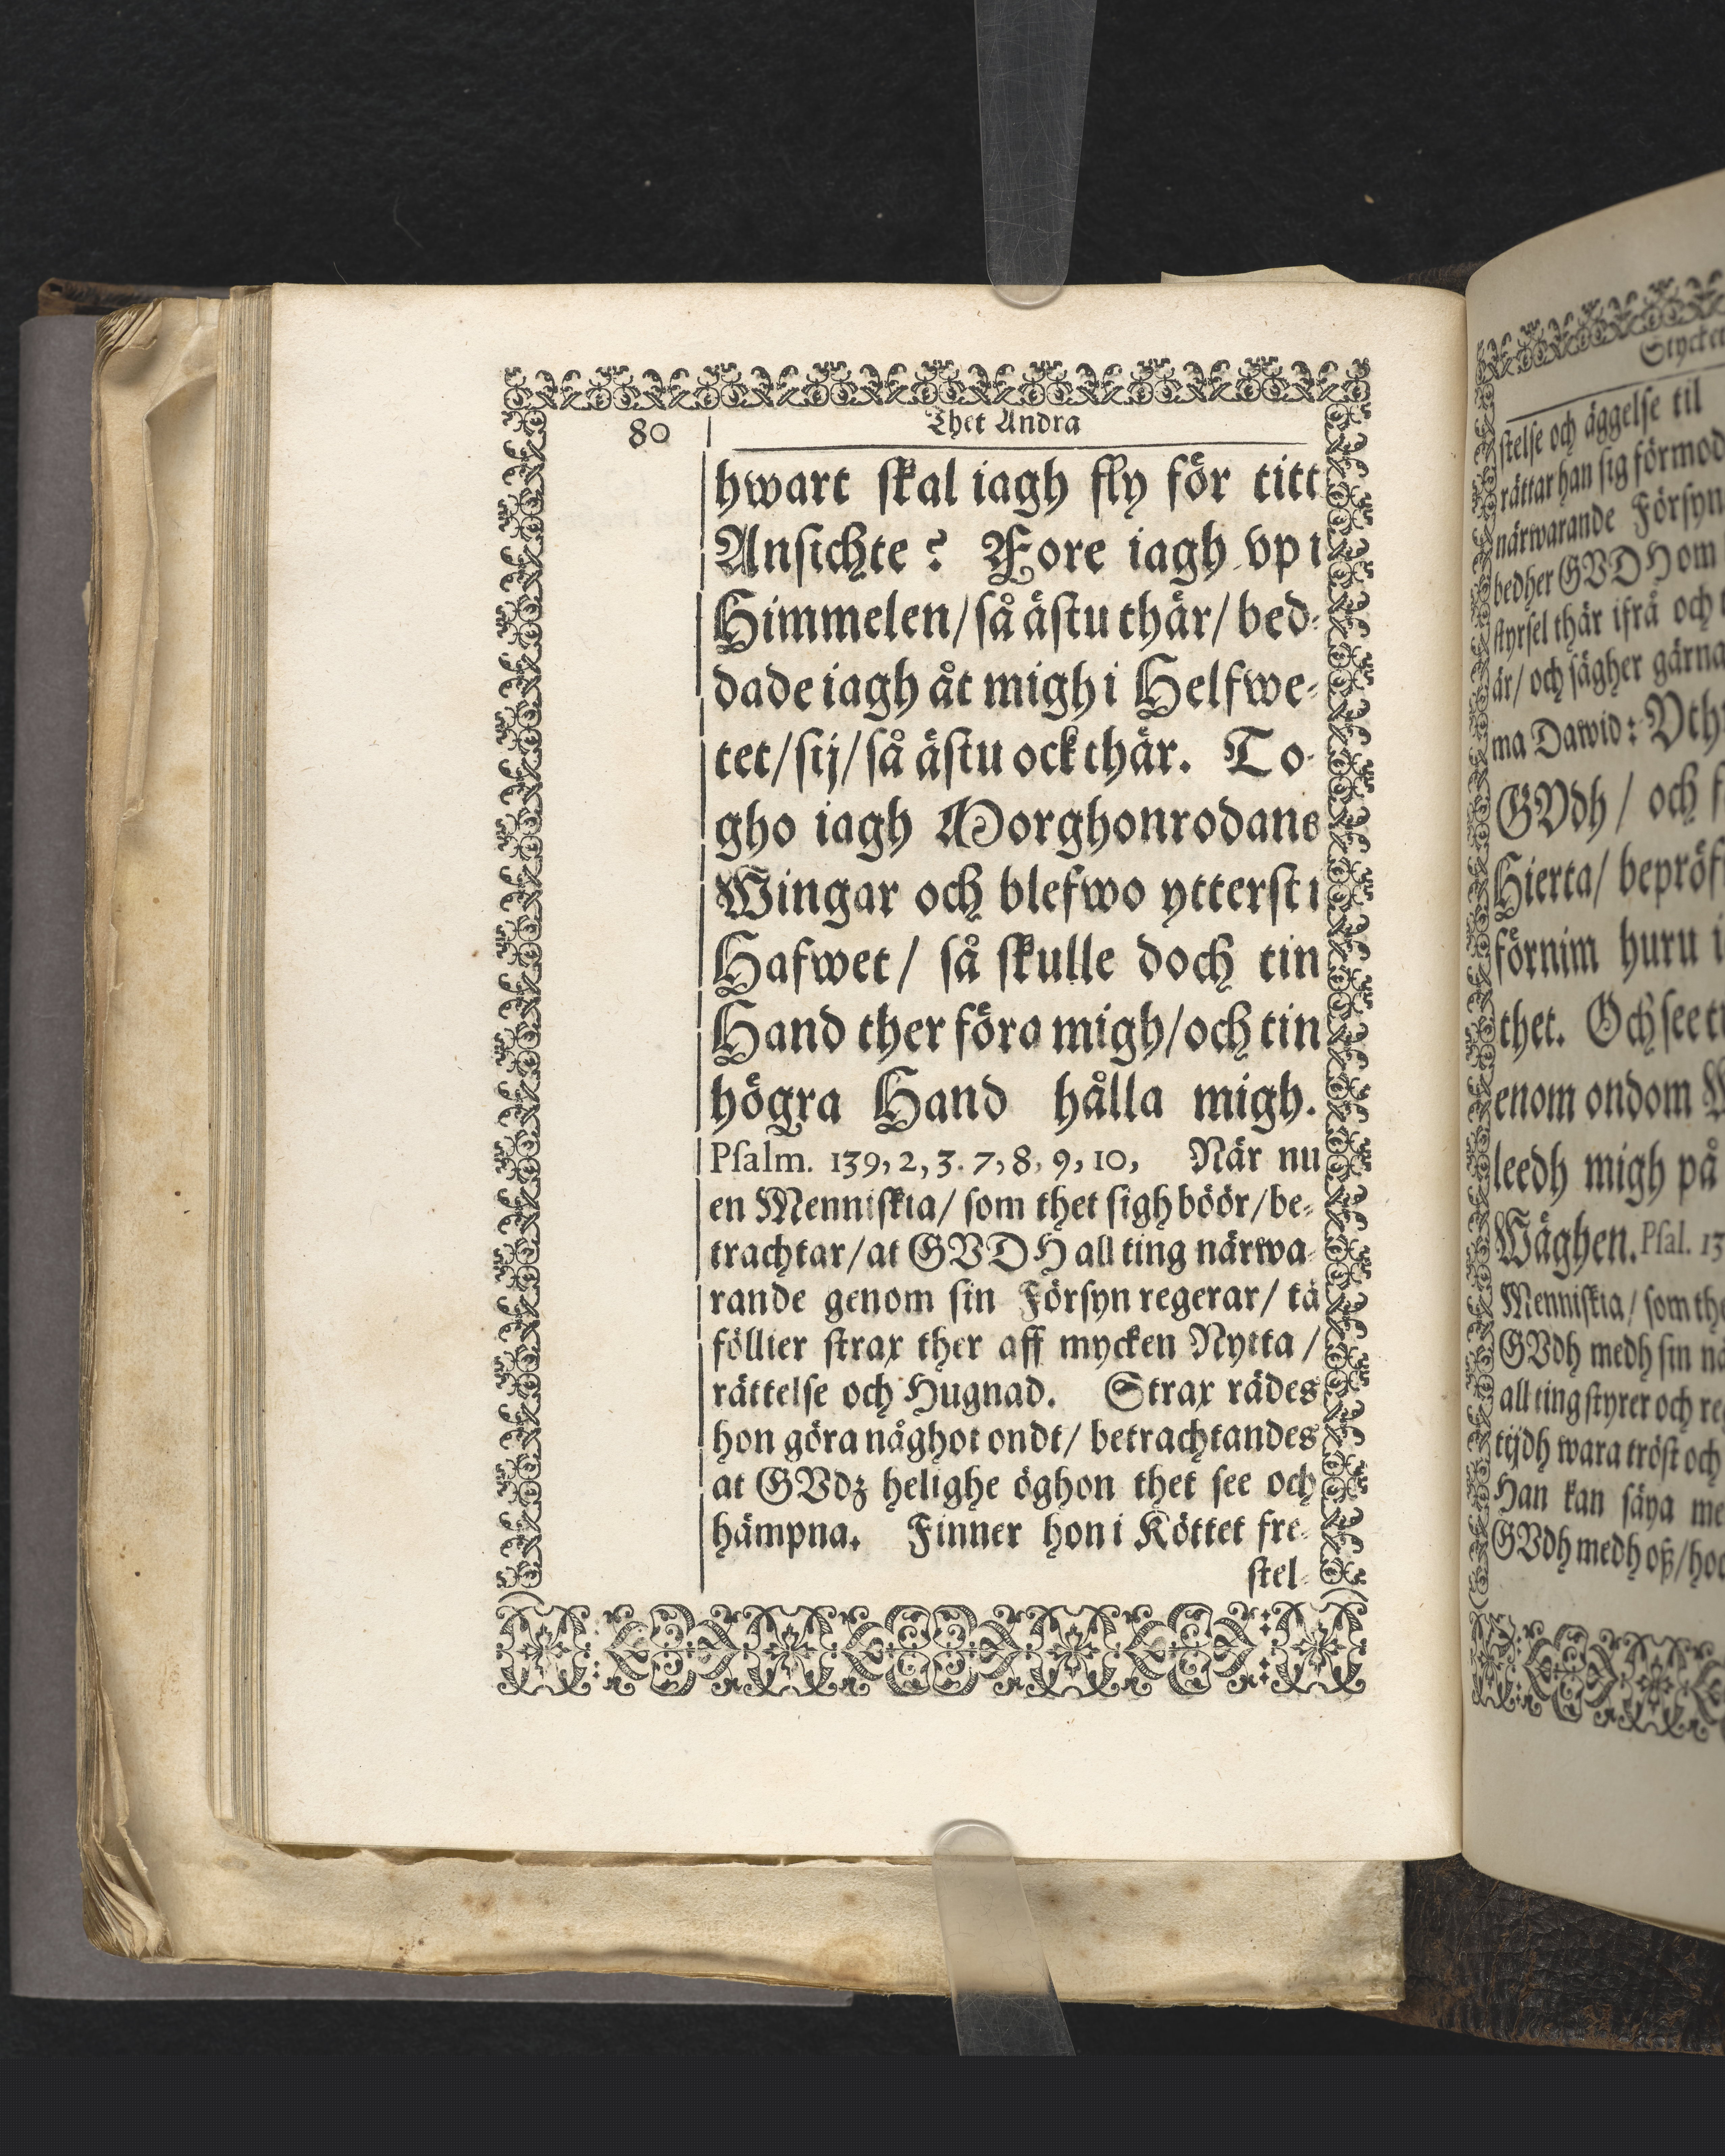 80
Thet Andra
hwart skal iagh fly för titt
Ansichte? Fore iagh vp i
Himmelen/ så ästu thär/ bed-
dade iagh åt migh i Helfwe-
tet/ sij/ så ästu ock thär. To-
gho iagh Morghonrodans
Wingar och blefwo ytterst i
Hafwet/ så skulle doch tin
Hand ther föra migh/ och tin
högra Hand hålla migh.
Psalm. 139, 2, 3. 7, 8, 9, 10, När nu
en Menniskia/ som thet sigh böör/ be-
trachtar/ at GVDH all ting närwa-
rande genom sin Försyn regerar/ tå
föllier strax ther aff mycken Nytta/
rättelse och Hugnad. Strax rädes
hon göra någhot ondt/ betrachtandes
at GVdz helighe öghon thet see och
hämpna. Finner hon i Köttet fre-
stel-
Stycket
stelse och äggelse til
rättar han sig förmod
närwarande Försyn
bedher GVDH om
styrsel thär ifrå och
är/ och sägher gärna
ma Dawid: Vth
GVdh/ och
Hierta/ bepröf
förnim huru i
thet. Och see
enom ondom
leedh migh på
Wäghen. Psal. 13
Menniskia/ som the
GVdh medh sin nä
all ting styrer och re
tijdh wara tröst och
Han kan säya me
GVdh medh oß/ ho